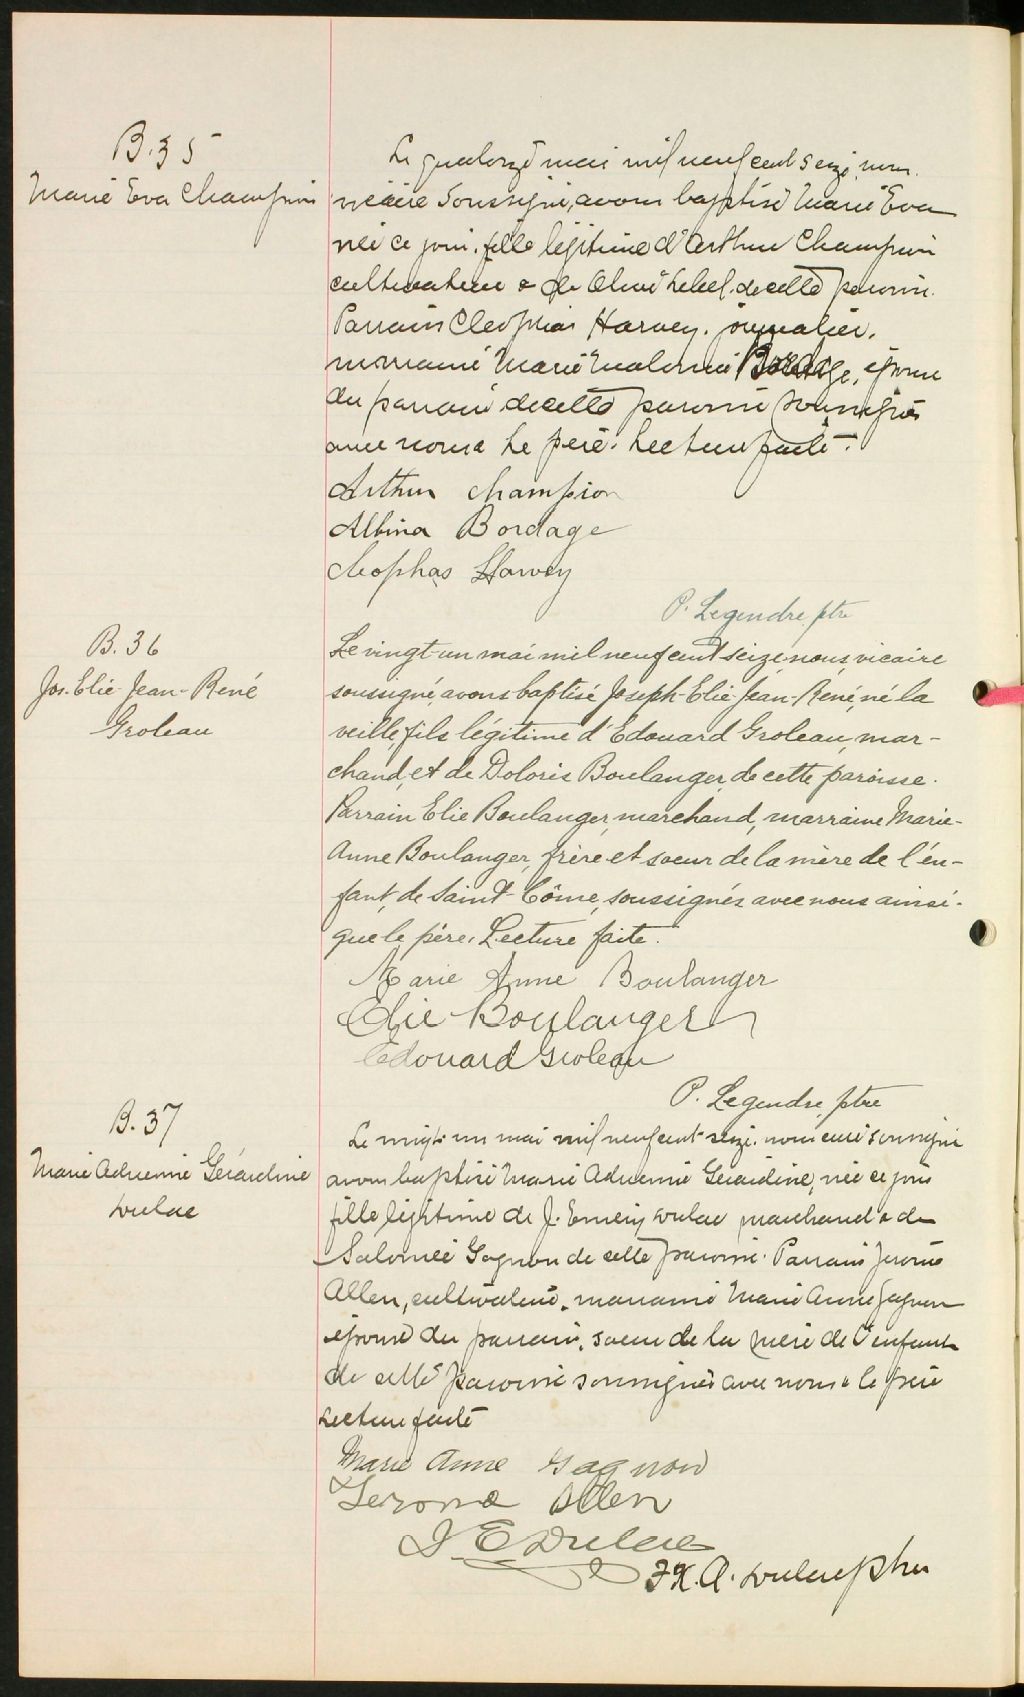 B. 35
Marie Eva Champion
Le quatorze mai mil neuf cent seize, nous
vicaire soussigné, avons baptisé Marie Eva
née ce jour, fille légitime d'Arthur Champion
cultivateur & de Lebel, de cette paroisse.
Parrain Cleophas Harvey, journalier,
marraine Marie Bordage, épouse
du parrain de cette paroisse soussignés
avec nous & le père. Lecture faite.
Arthur Champion
Albina Bordage
Cleophas Harvey
P. Legendre, ptre
B. 36
Jos. Elie-Jean-René
Groleau
Le vingt-un mai mil neuf cent seize, nous, vicaire
soussigné, avons baptisé Joseph-Elie-Jean-René, né la
veille, fils légitime d'Edouard Groleau, mar-
chand, et de Doloris Boulanger, de cette paroisse.
Parrain Elie Boulanger, marchand, marraine Marie-
Anne Boulanger, frère et soeur de la mère de l'en-
fant, de Saint-Côme, soussignés avec nous ainsi-
que le père. Lecture faite.
Marie Anne Boulanger
Elie Boulanger
Edouard Groleau
P. Legendre, ptre
B. 37
Marie Adrienne Gérardine
Dulac
Le vingt-un mai mil neuf cent seize, nous curé soussigné
avons baptisé Marie Adrienne Gérardine, née ce jour
fille légitime de J. Emery Dulac marchand & de
Salomée Gagnon de cette paroisse. Parrain Jérome
Allen, cultivateur, marraine Marie Anne Gagnon
épouse du parrain, soeur de la mère de l'enfant
de cette paroisse soussignés avec nous & le père
Lecture faite
Marie Anne Gagnon
Jerome Allen
J E Dulac
F.X. A. Dulac ptre